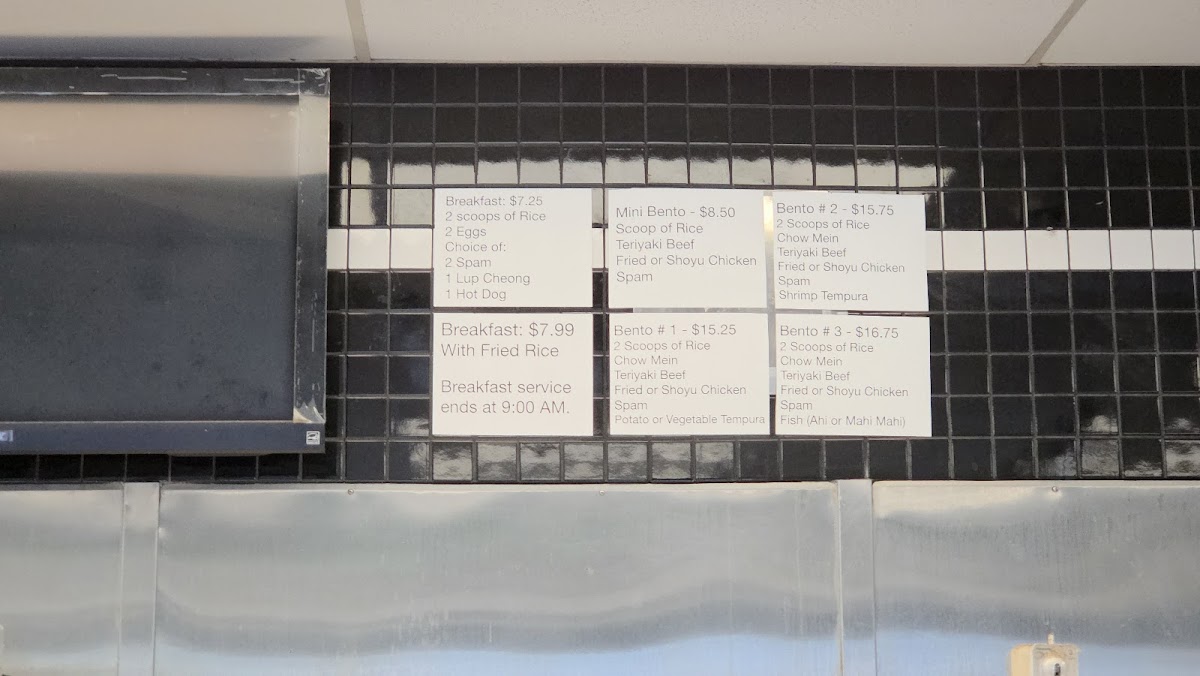 Breakfast: $7.25
2 scoops of Rice
2 Eggs
Choice of:
2 Spam
1 Lup Cheong
1 Hot Dog
Mini Bento - $8.50
Scoop of Rice
Teriyaki Beef
Fried or Shoyu Chicken
Spam
Bento # 2 - $15.75
2 Scoops of Rice
Chow Mein
Teriyaki Beef
Fried or Shoyu Chicken
Spam
Shrimp Tempura
Breakfast: $7.99
With Fried Rice
Breakfast service
ends at 9:00 AM.
Bento # 1 - $15.25
2 Scoops of Rice
Chow Mein
Teriyaki Beef
Fried or Shoyu Chicken
Spam
Potato or Vegetable Tempura
Bento # 3 - $16.75
2 Scoops of Rice
Chow Mein
Teriyaki Beef
Fried or Shoyu Chicken
Spam
Fish (Ahi or Mahi Mahi)